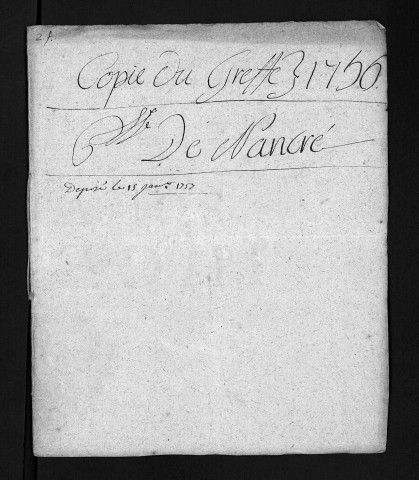 2 f.
Copie du Greffe 1756
Psse De Nancré
Deposé le 15 janv. 1757